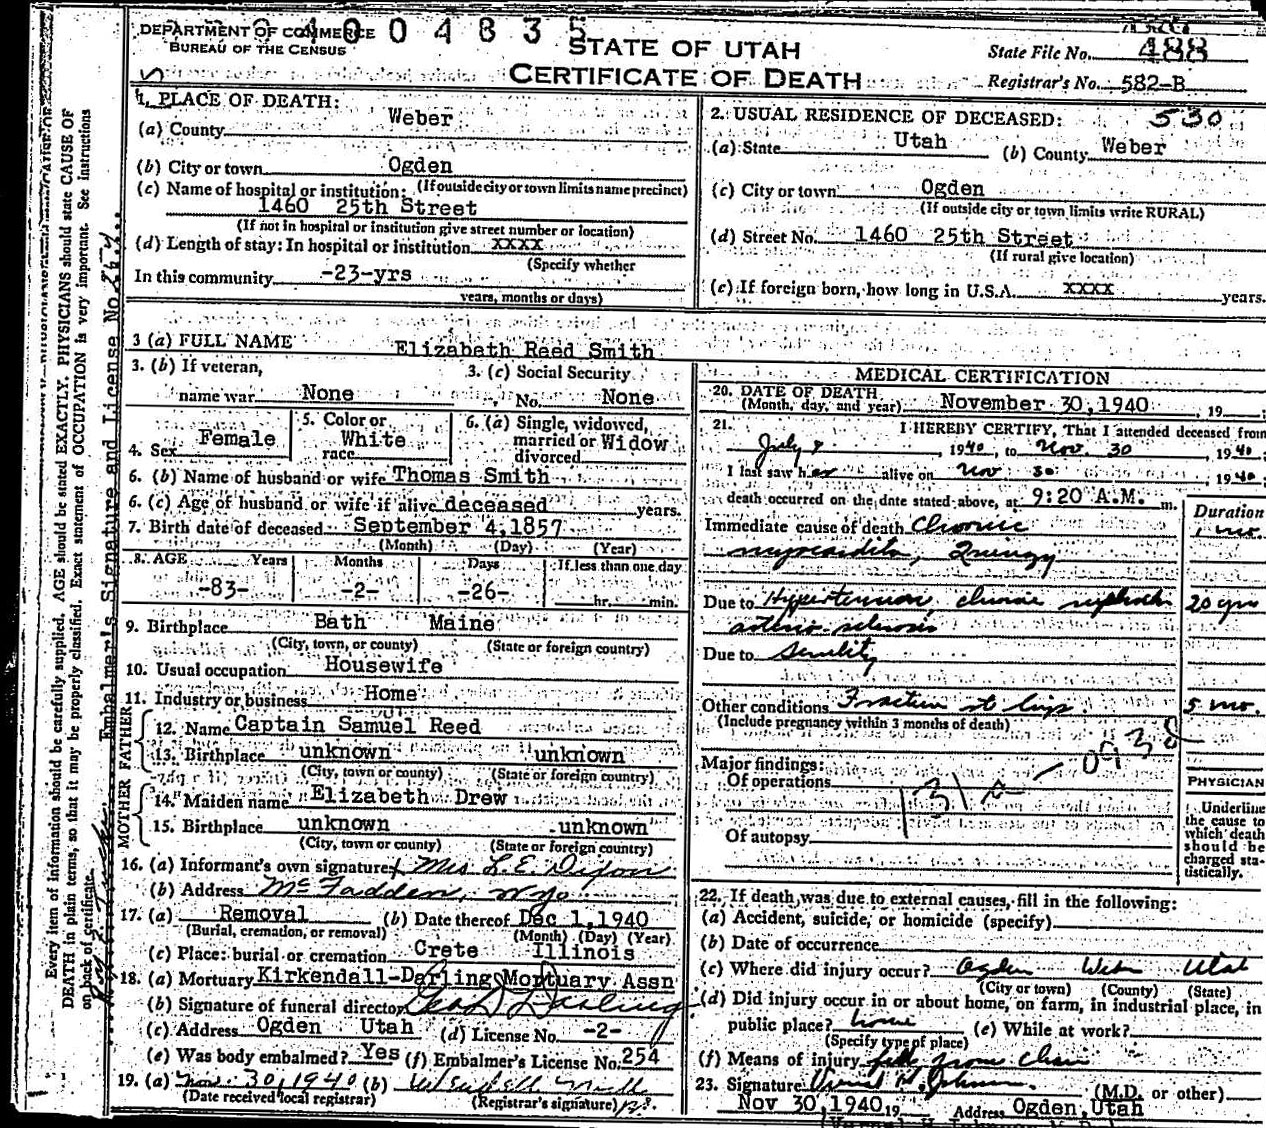 DEPARTMENT OF COMMERCE
BUREAU OF THE CENSUS
4 0 0 4 8 3 5
STATE OF UTAH
CERTIFICATE OF DEATH
State File No. 488
Registrar's No. 582-B
1. PLACE OF DEATH:
(a) County Weber
(b) City or town Ogden
(If outside city or town limits name precinct)
(c) Name of hospital or institution:
1460 25th Street
(If not in hospital or institution give street number or location)
(d) Length of stay: In hospital or institution xxxx
(Specify whether
In this community -23-yrs
years, months or days)
2. USUAL RESIDENCE OF DECEASED: 530
(a) State Utah (b) County Weber
(c) City or town Ogden
(If outside city or town limits write RURAL)
(d) Street No. 1460 25th Street
(If rural give location)
(e) If foreign born, how long in U.S.A. xxxx years.
3 (a) FULL NAME Elizabeth Reed Smith
3. (b) If veteran, name war None
3. (c) Social Security No. None
4. Sex Female
5. Color or race White
6. (a) Single, widowed, married or divorced Widow
6. (b) Name of husband or wife Thomas Smith
6. (c) Age of husband or wife if alive deceased years.
7. Birth date of deceased September 4, 1857
(Month) (Day) (Year)
8. AGE Years Months Days If less than one day
-83- -2- -26- hr. min.
9. Birthplace Bath Maine
(City, town, or county) (State or foreign country)
10. Usual occupation Housewife
11. Industry or business Home
FATHER
12. Name Captain Samuel Reed
13. Birthplace unknown unknown
(City, town or county) (State or foreign country)
MOTHER
14. Maiden name Elizabeth Drew
15. Birthplace unknown unknown
(City, town or county) (State or foreign country)
16. (a) Informant's own signature Mrs L. E. Dixon
(b) Address McFadden, Wyo
17. (a) Removal (b) Date thereof Dec 1, 1940
(Burial, cremation, or removal) (Month) (Day) (Year)
(c) Place: burial or cremation Crete Illinois
18. (a) Mortuary Kirkendall-Darling Mortuary Assn
(b) Signature of funeral director Darling
(c) Address Ogden Utah (d) License No. -2-
(e) Was body embalmed? Yes (f) Embalmer's License No. 254
19. (a) Nov. 30, 1940 (b)
(Date received local registrar) (Registrar's signature)
MEDICAL CERTIFICATION
20. DATE OF DEATH
(Month, day, and year) November 30, 1940, 19
21. I HEREBY CERTIFY, That I attended deceased from
July 8, 1940, to Nov. 30, 1940,
I last saw her alive on Nov 30, 1940,
death occurred on the date stated above, at 9:20 A.M. m.
Duration
Immediate cause of death Chronic 1 mo.
myocarditis, Quinsy
Due to Hypertension, chronic nephritis 20 yrs
arterio-sclerosis
Due to Senility
Other conditions Fracture rt hip. 5 mo.
(Include pregnancy within 3 months of death)
Major findings:
Of operations
Of autopsy
PHYSICIAN
Underline
the cause to
which death
should be
charged sta-
tistically.
22. If death was due to external causes, fill in the following:
(a) Accident, suicide, or homicide (specify)
(b) Date of occurrence
(c) Where did injury occur? Ogden Weber Utah
(City or town) (County) (State)
(d) Did injury occur in or about home, on farm, in industrial place, in
public place? home (e) While at work?
(Specify type of place)
(f) Means of injury fell from chair
23. Signature (M.D. or other)
Nov 30, 1940, 19 Address Ogden, Utah
Every item of information should be carefully supplied. AGE should be stated EXACTLY. PHYSICIANS should state CAUSE OF
DEATH in plain terms, so that it may be properly classified. Exact statement of OCCUPATION is very important. See Instructions
on back of certificate.
Embalmer's Signature and License No.